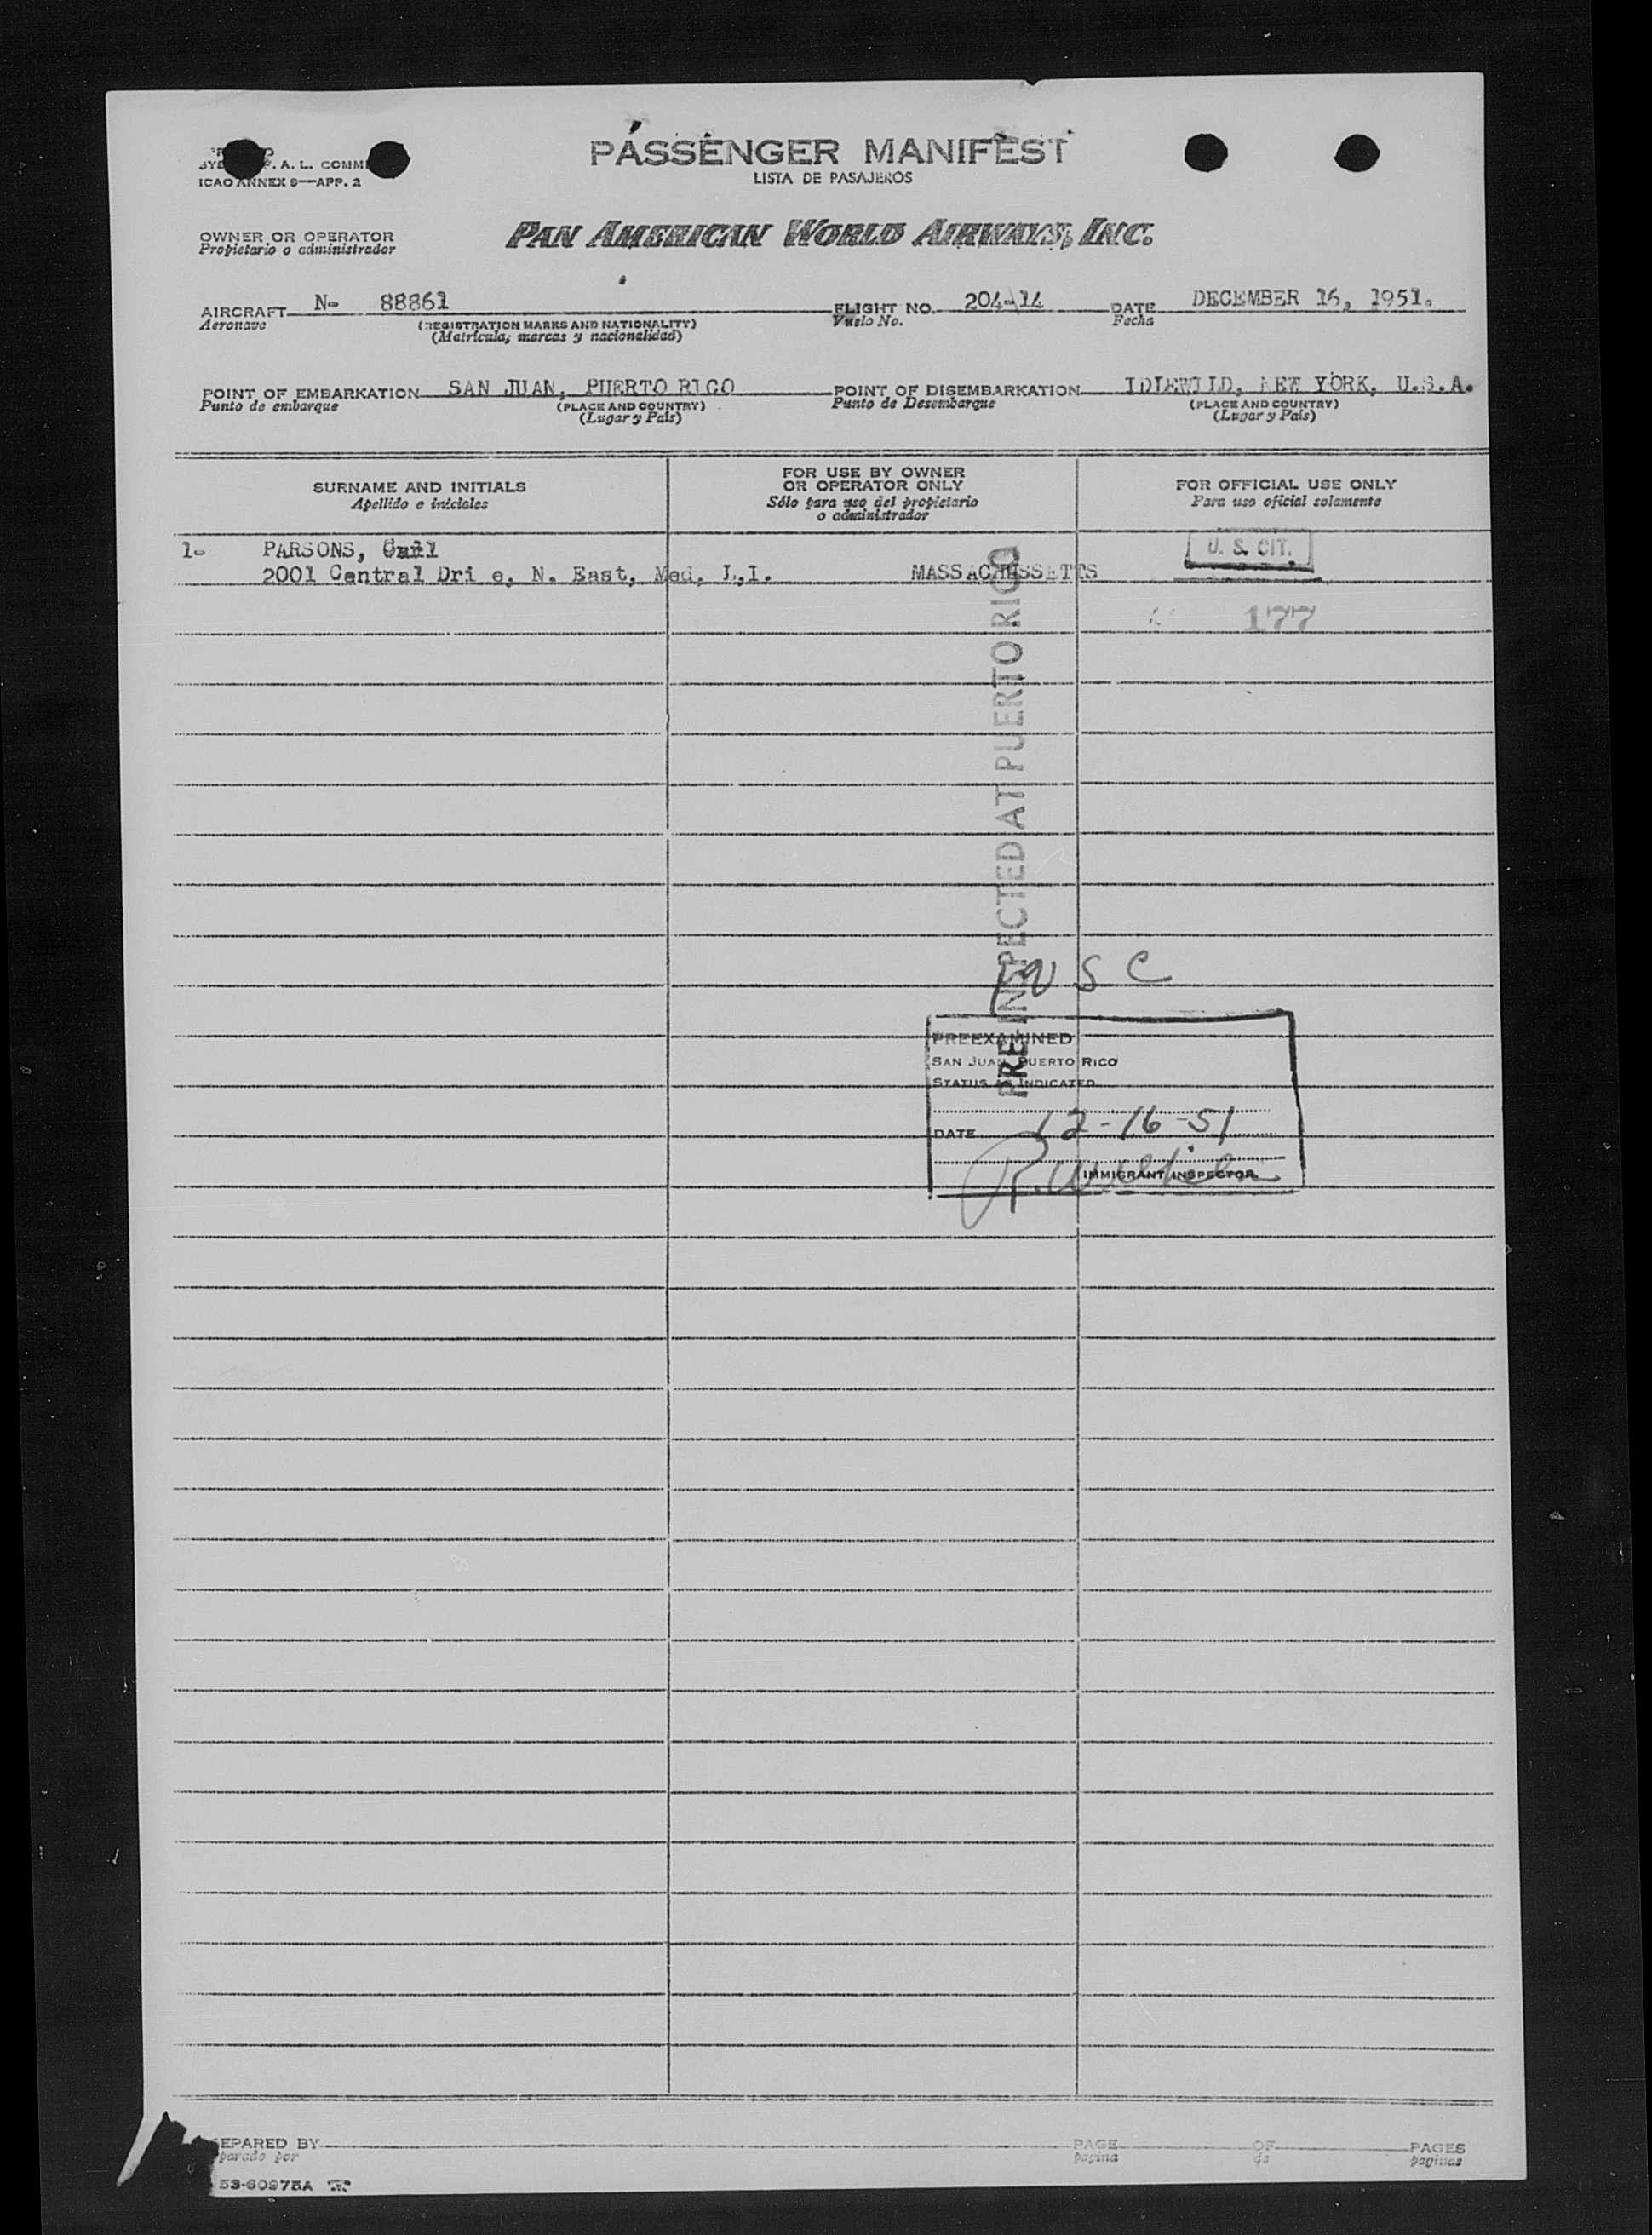 P. A. L. COMM
ICAO ANNEX 9—APP. 2
PASSENGER MANIFEST
LISTA DE PASAJEROS
OWNER OR OPERATOR
Propietario o administrador
PAN AMERICAN WORLD AIRWAYS, INC.
AIRCRAFT N- 88861 FLIGHT NO. 204-14 DATE DECEMBER 16, 1951.
Aeronave (REGISTRATION MARKS AND NATIONALITY) Vuelo No. Fecha
(Matrícula, marcas y nacionalidad)
POINT OF EMBARKATION SAN JUAN, PUERTO RICO POINT OF DISEMBARKATION IDLEWILD, NEW YORK, U.S.A.
Punto de embarque (PLACE AND COUNTRY) Punto de Desembarque (PLACE AND COUNTRY)
(Lugar y País) (Lugar y País)
SURNAME AND INITIALS
Apellido e iniciales
FOR USE BY OWNER
OR OPERATOR ONLY
Sólo para uso del propietario
o administrador
FOR OFFICIAL USE ONLY
Para uso oficial solamente
1- PARSONS,
2001 Central Dri e, N. East, Med, L,I. MASSACHUSSETTS
U. S. CIT.
177
PRE INSPECTED AT PUERTO RICO
USC
PREEXAMINED
SAN JUAN, PUERTO RICO
STATUS AS INDICATED
DATE 12-16-51
IMMIGRANT INSPECTOR
EPARED BY PAGE OF PAGES
parado por pagina de paginas
53-60975A